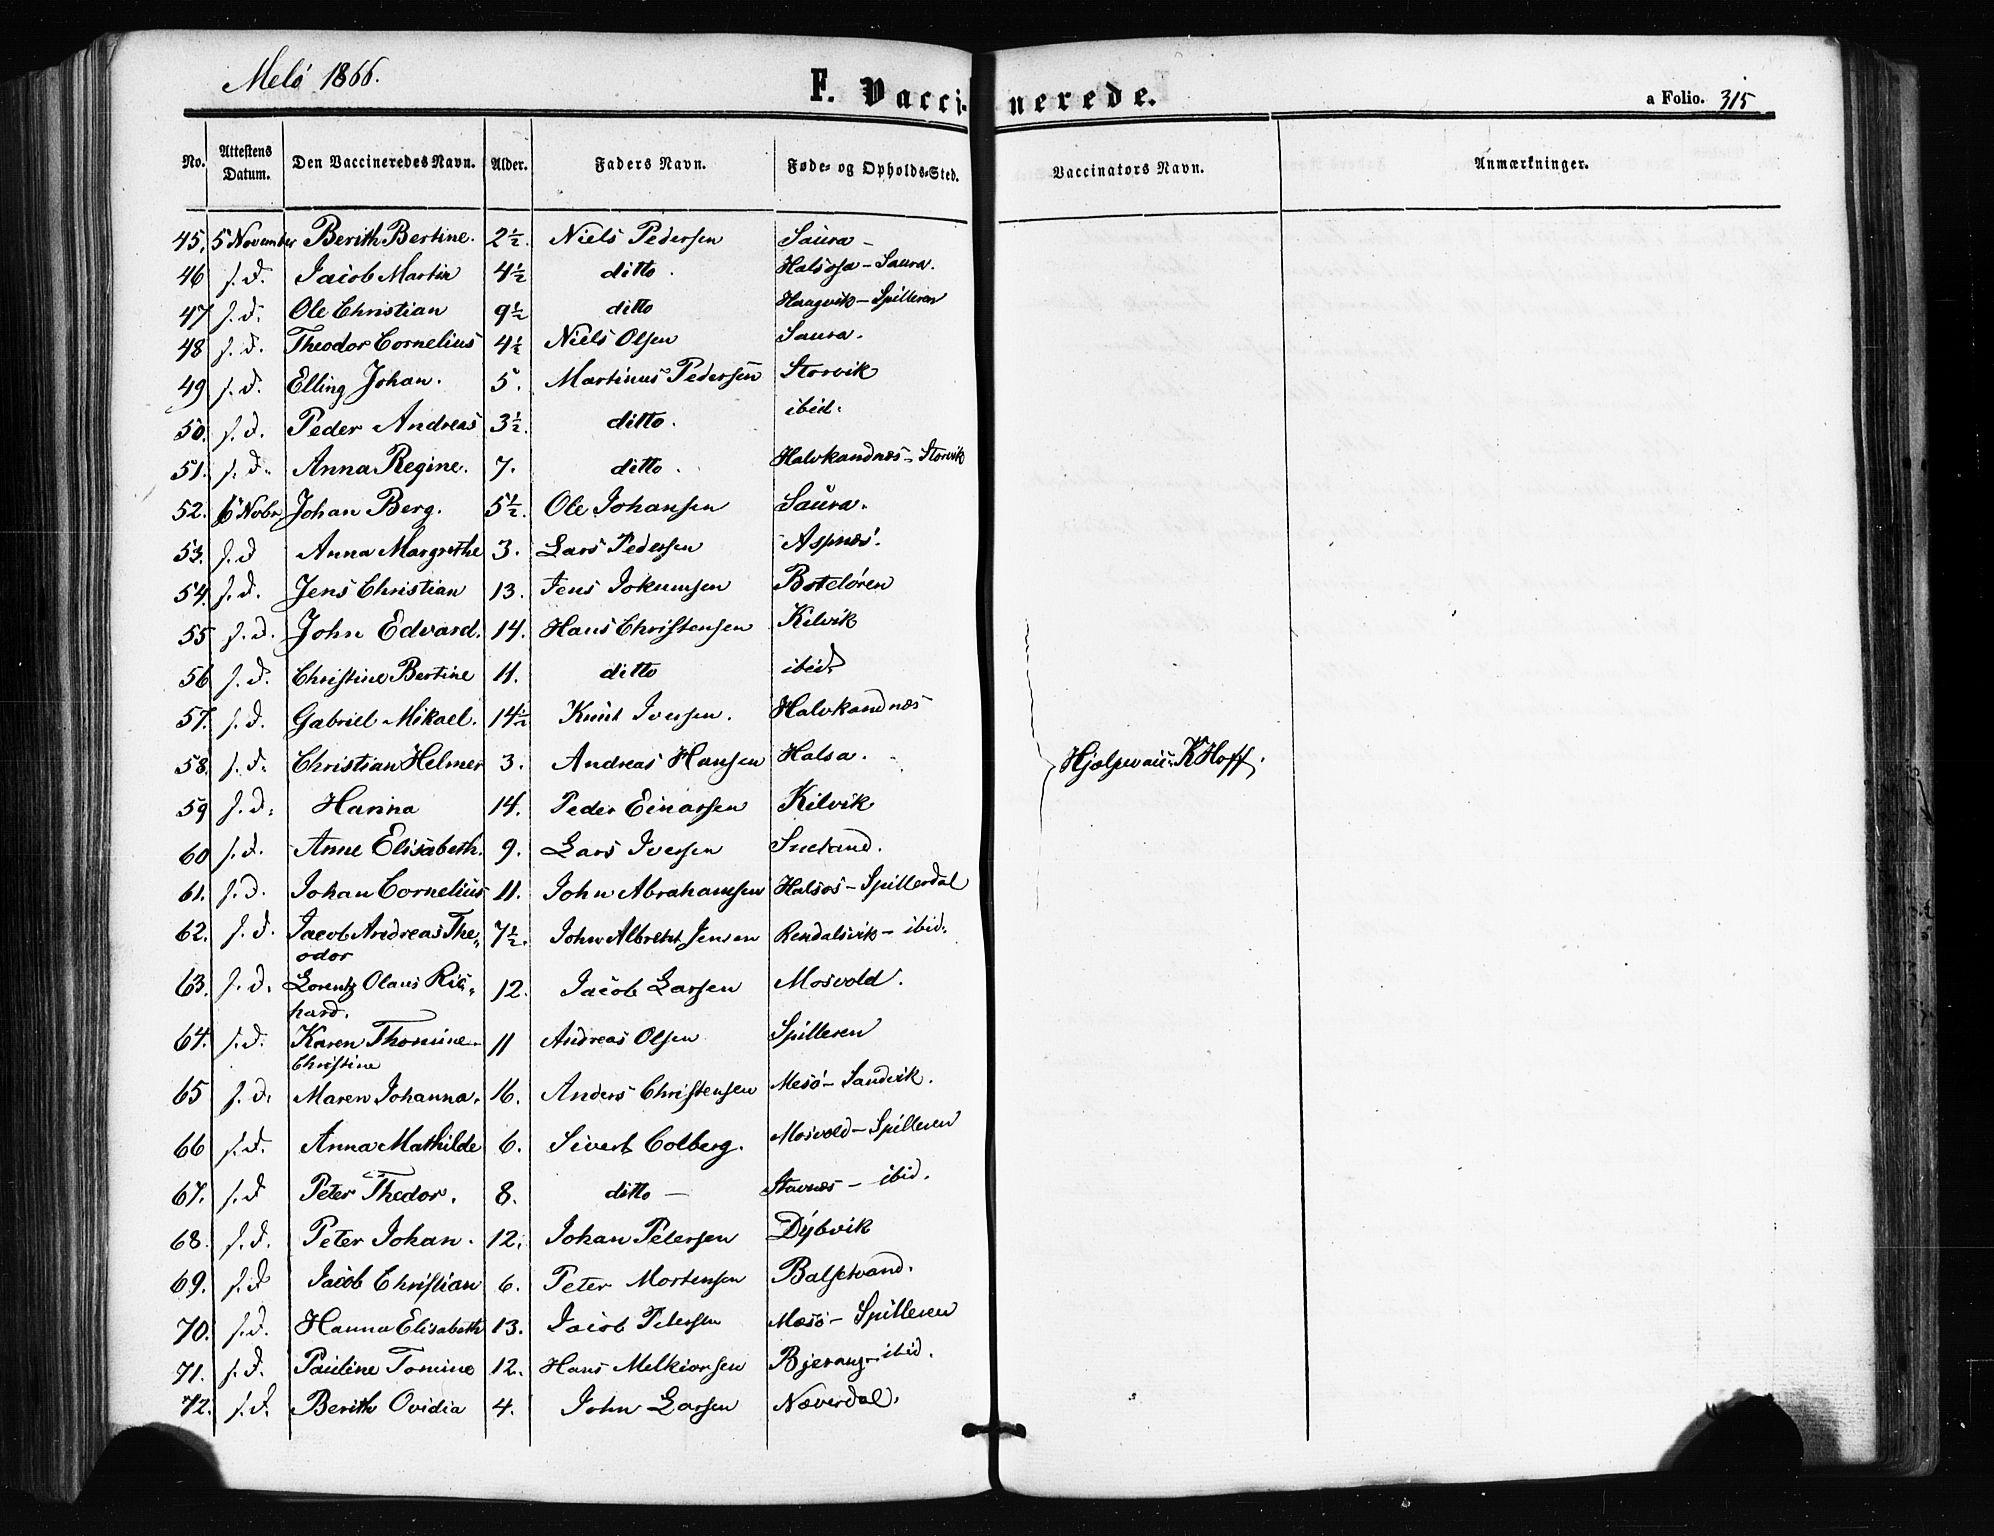 Melö 1866.
F. Vaccinerede.
a Folio. 315
No. Attestens Datum. Den Vaccineredes Navn. Alder. Faders Navn. Føde- og Opholds-Sted. Vaccinators Navn. Anmærkninger.
45. 5 November Berith Bertine. 2½. Niels Pedersen Saura -
46 s. d. Jacob Martin 4½ ditto. Halsosa - Saura.
47 s. d. Ole Christian 9½ ditto Haagvik - Spilleren
48 s. d. Theodor Cornelius 4½ Niels Olsen Saura.
49 s. d. Elling Johan. 5. Martinus Pedersen Storvik
50. s. d. Peder Andreas 3½. ditto. ibid.
51. s. d. Anna Regine. 7. ditto. Halvkandnæs - Storvik
52. 6 Nobr Johan Berg. 5½. Ole Johansen Saura.
53. s. d Anna Margrethe 3. Lars Pedersen Aspnæs.
54. s. d. Jens Christian 13. Jens Jokumsen Boteløren
55 s. d. John Edvard. 14. Hans Christensen Kilvik
56 s. d. Christine Bertine 11. ditto ibid.
57. s. d. Gabriel Mikael. 14½ Knut Iversen. Halvkandnæs
58. s. d. Christian Helmer 3. Andreas Hansen Halsa. Hjælpevacc: K Hoff.
59 s. d. Hanna 14. Peder Einarsen Kilvik
60 s. d. Anne Elisabeth. 9. Lars Iversen
61. s. d. Johan Cornelius 11. John Abrahamsen Halsos - Spillerdal
62. s. d. Jacob Andreas The-
odor 7½. John Albrekt Jensen Rendalsvik - ibid.
63. s. d. Lorentz Olaus Ric-
hard. 12. Jacob Larsen Mosvold.
64. s. d. Karen Thomine
Christine 11 Andreas Olsen Spilleren
65 s. d. Maren Johanna. 16. Anders Christensen Mesö - Sandvik.
66 s. d. Anna Mathilde 6. Sivert Colberg. Mosvold - Spilleren
67. s. d Peter Thedor. 8. ditto - Stavnæs - ibid.
68. s. d. Peter Johan. 12. Johan Petersen Dybvik
69. s. d Jacob Christian 6. Peter Mortensen Balsetvand.
70. s. d. Hanna Elisabeth 13. Jacob Petersen Mæsö - Spilleren
71. s. d. Pauline Tomine 12. Hans Melkiorsen Bjerang - ibid.
72. s. d. Berith Ovidia 4. John Larsen Næverdal.